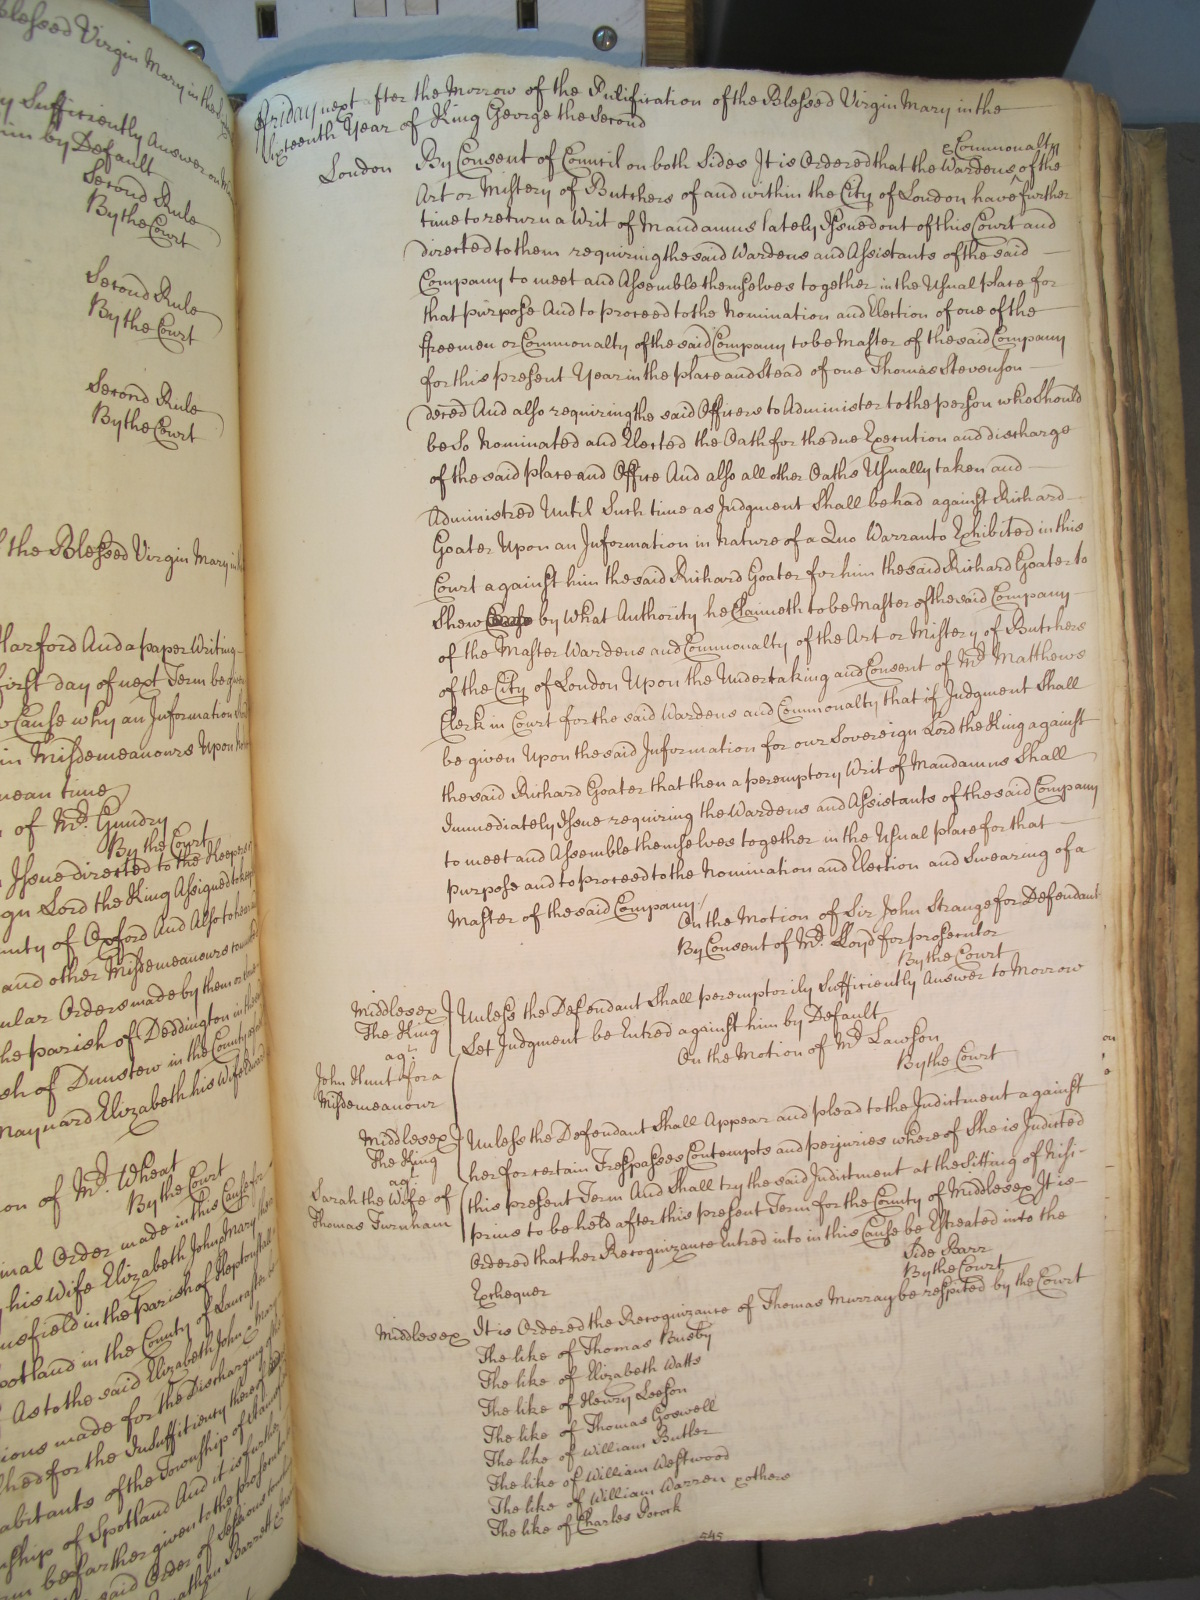 Blessed Virgin Mary in the
y Sufficiently Answer on
him by Default
Second Rule
By the Court
Second Rule
By the Court
Second Rule
By the Court
the Blessed Virgin Mary in
Harford And a paper Writing
first day of next Term be
Cause why an Information
in Misdemeanours Upon
mean time
of Mr. Gundry
By the Court
Issue directed to the Keepers
gn Lord the King Assigned to keep
unty of Oxford And Also to hear
and other Misdemeanours
ular Orders made by them or
the parish of Deddington in the
sh of Dunstew in the County
Maynard Elizabeth his Wife
on of Mr. Wheat
By the Court
inal Order made in this Cause
his Wife Elizabeth John Mary
nsfield in the Parish of
potland in the County of Lancaster
As to the said Elizabeth John & Mary
ions made for the Discharging
shed for the Insufficienty thereof
abitants of the Township of
nship of Spotland And it is further
am be farther given to the prosecutor
said Order of Sessions
Jonathan Barrett
Friday next after the Morrow of the Purification of the Blessed Virgin Mary in the
Sixteenth Year of King George the Second
London By Consent of Council on both Sides It is Ordered that the Wardens & Commonalty of the
Art or Mistery of Butchers of and within the City of London have further
time to return a Writ of Mandamus lately Issued out of this Court and
directed to them requiring the said Wardens and Assistants of the said
Company to meet and Assemble themselves together in the Usual place for
that purpose And to proceed to the Nomination and Election of one of the
Freemen or Commonalty of the said Company to be Master of the said Company
for this present Year in the place and Stead of one Thomas Stevenson
dered And also requiring the said Officers to Administer to the person who Should
be So Nominated and Elected the Oath for the due Execution and discharge
of the said place and Office And also all other Oaths Usually taken and
Administred Until Such time as Judgment Shall be had against Richard
Goater Upon an Information in Nature of a Quo Warranto Exhibited in this
Court against him the said Richard Goater for him the said Richard Goater to
Shew Cause by What Authority he Claimeth to be Master of the said Company
of the Master Wardens and Commonalty of the Art or Mistery of Butchers
of the City of London Upon the Undertaking and Consent of Mr. Matthews
Clerk in Court for the said Wardens and Commonalty, that if Judgment Shall
be given Upon the said Information for our Sovereign Lord the King against
the said Richard Goater that then a peremptory Writ of Mandamus Shall
Immediately Issue requiring the Wardens and Assistants of the said Company
to meet and Assemble themselves together in the Usual place for that
purpose and to proceed to the Nomination and Election and Swearing of a
Master of the said Company.
On the Motion of Sir John Strange for Defendant
By Consent of Mr. Lloyd for prosecutor
By the Court
Middlesex Unless the Defendant Shall peremptorily Sufficiently Answer to Morrow
The King Let Judgment be Entred against him by Default
agt. On the Motion of Mr. Lawson
John Hunt for a By the Court
Misdemeanour
Middlesex Unless the Defendant Shall Appear and plead to the Indictment against
The King her for certain Trespasses Contempts and perjuries whereof She is Indicted
agt. this present Term And Shall try the said Indictment at the Sitting of Nisi
Sarah the Wife of prius to be held after this present Term for the County of Middlesex It is
Thomas Turnham Ordered that her Recognizance Entred into in this Cause be Estreated into the
Exchequer
Side Barr
By the Court
Middlesex It is Ordered the Recognizance of Thomas Murray be respited by the Court
The like of Thomas Busby
The like of Elizabeth Watts
The like of Henry Leeson
The like of Thomas Goswell
The like of William Butler
The like of William Westwood
The like of William Warren & others
The like of Charles
545